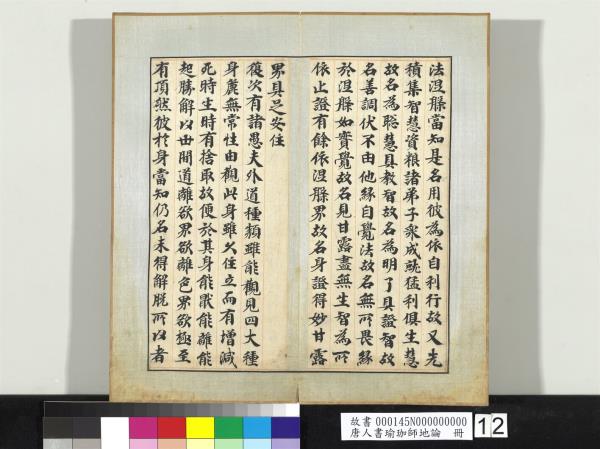 法涅槃當知是名用彼為依自利行故又先
積集智慧資粮諸弟子衆成就猛利俱生慧
故名為聡慧具教智故名為明了具證智故
名善調伏不由他緣自覺法故名無所畏緣
於涅槃如實覺故名見甘露盡無生智為所
依止證有餘依涅槃界故名身證得妙甘露
界具足安住
復次有諸愚夫外道種類雖能觀見四大種
身麁無常性由觀此身雖久住立而有增減
死時生時有捨取故便於其身能猒能離能
起勝解以世間道離欲界欲離色界欲極至
有頂然彼於身當知仍名未得解脫所以者
故書 000145N000000000
唐人書瑜珈師地論 冊
12